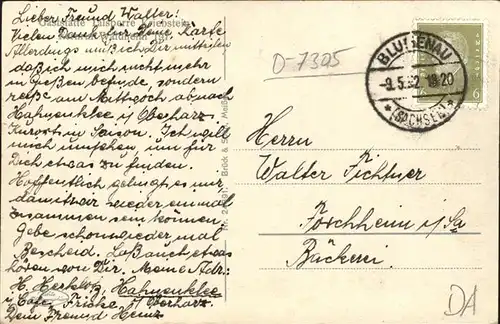 Gaststätte Talsperre Kriebstein
Lieber Freund Walter!
Vielen Dank für Deine Karte
Allerdings muß ich Dir mitteilen
daß ich mich nicht mehr
in Gießen befinde, sondern
reiße am Mittwoch ab nach
Hahnenklee i/ Oberharz
Kurort in Saison. Ich will
mich umsehen, um für
Dich etwas zu finden.
Hoffentlich gelingt es mir
damit wir wieder einmal
zusammen sein können.
Gebe schon wieder mal
Bescheid. Laß auch etwas
hören von Dir. Meine Adr:
H. Hahnenklee
Cafe Fricke, i/ Oberharz.
Dein Freund Heinz
Brück &
D-7305
BLUMENAU
-9.5.32. 18-20
*(SACHSEN)*
6
Herrn
Walter Fichtner
Forchheim i/Sa
Bäckerei
DA